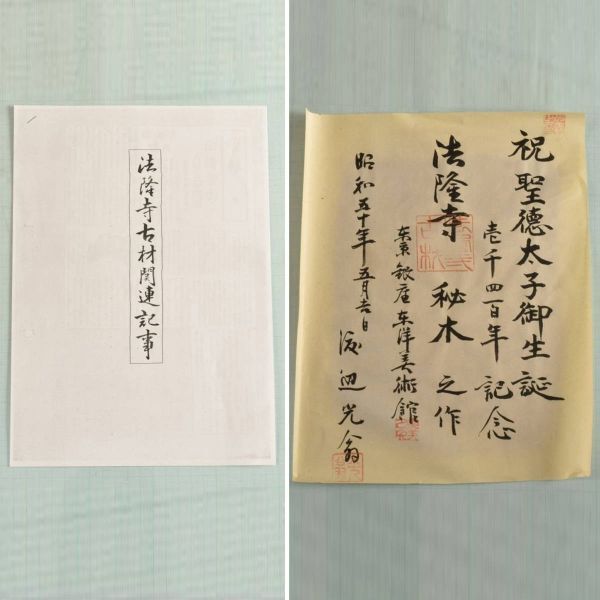 法隆寺古材関連記事
祝聖德太子御生誕
壱千四百年記念
法隆寺秘木之作
东京銀座东洋美術館
昭和五十年五月吉日
渡辺光翁